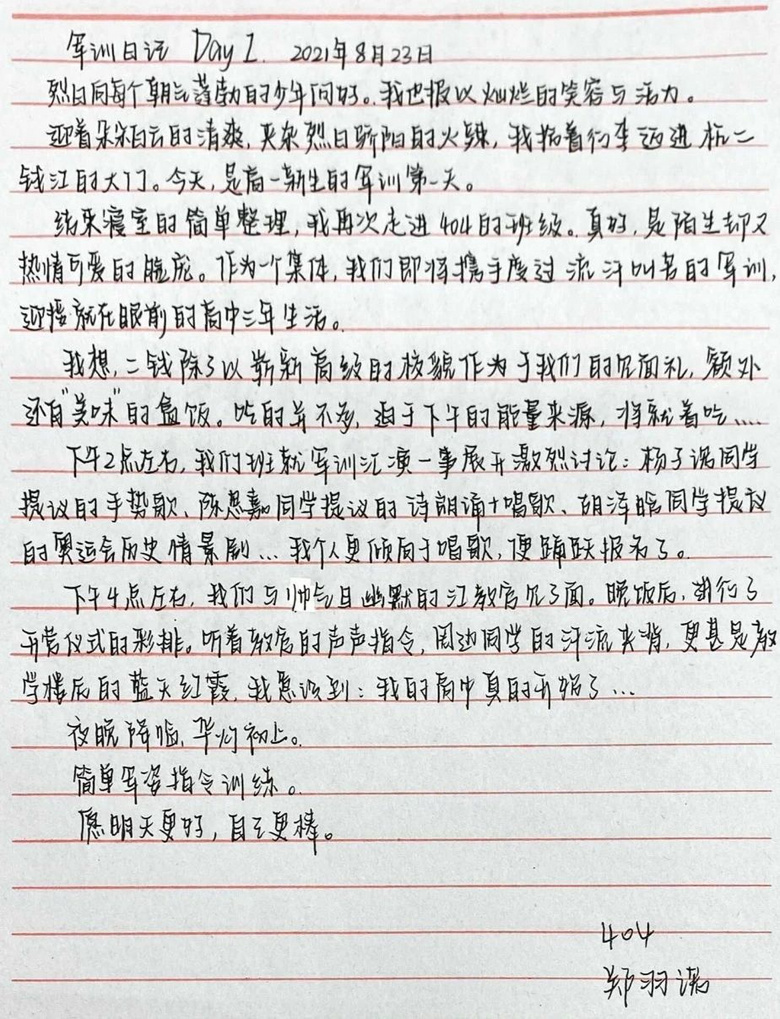 军训日记 Day 1. 2021年8月23日
烈日向每个朝气蓬勃的少年问好。我也报以灿烂的笑容与活力。
迎着朵朵白云的清爽,夹杂烈日骄阳的火辣,我拖着行李迈进杭二
钱江的大门。今天,是高一新生的军训第一天。
结束寝室的简单整理,我再次走进404的班级。真好,是陌生却又
热情可爱的脸庞。作为一个集体,我们即将携手度过流汗叫苦的军训,
迎接就在眼前的高中三年生活。
我想,二钱除了以崭新高级的校貌作为于我们的见面礼,额外
还有"美味"的盒饭。吃的并不多,迫于下午的能量来源,将就着吃....
下午2点左右,我们班就军训汇演一事展开激烈讨论:杨子诺同学
提议的手势歌、陈思嘉同学提议的诗朗诵+唱歌、胡泽晗同学提议
的奥运会历史情景剧...我个人更倾向于唱歌,便踊跃报名了。
下午4点左右,我们与帅气且幽默的江教官见了面。晚饭后,进行了
开营仪式的彩排。听着教官的声声指令,周边同学的汗流夹背,更甚是教
学楼后的蓝天红霞,我意识到:我的高中真的开始了...
夜晚降临,华灯初上。
简单军姿指令训练。
愿明天更好,自己更棒。
404
郑羽诺